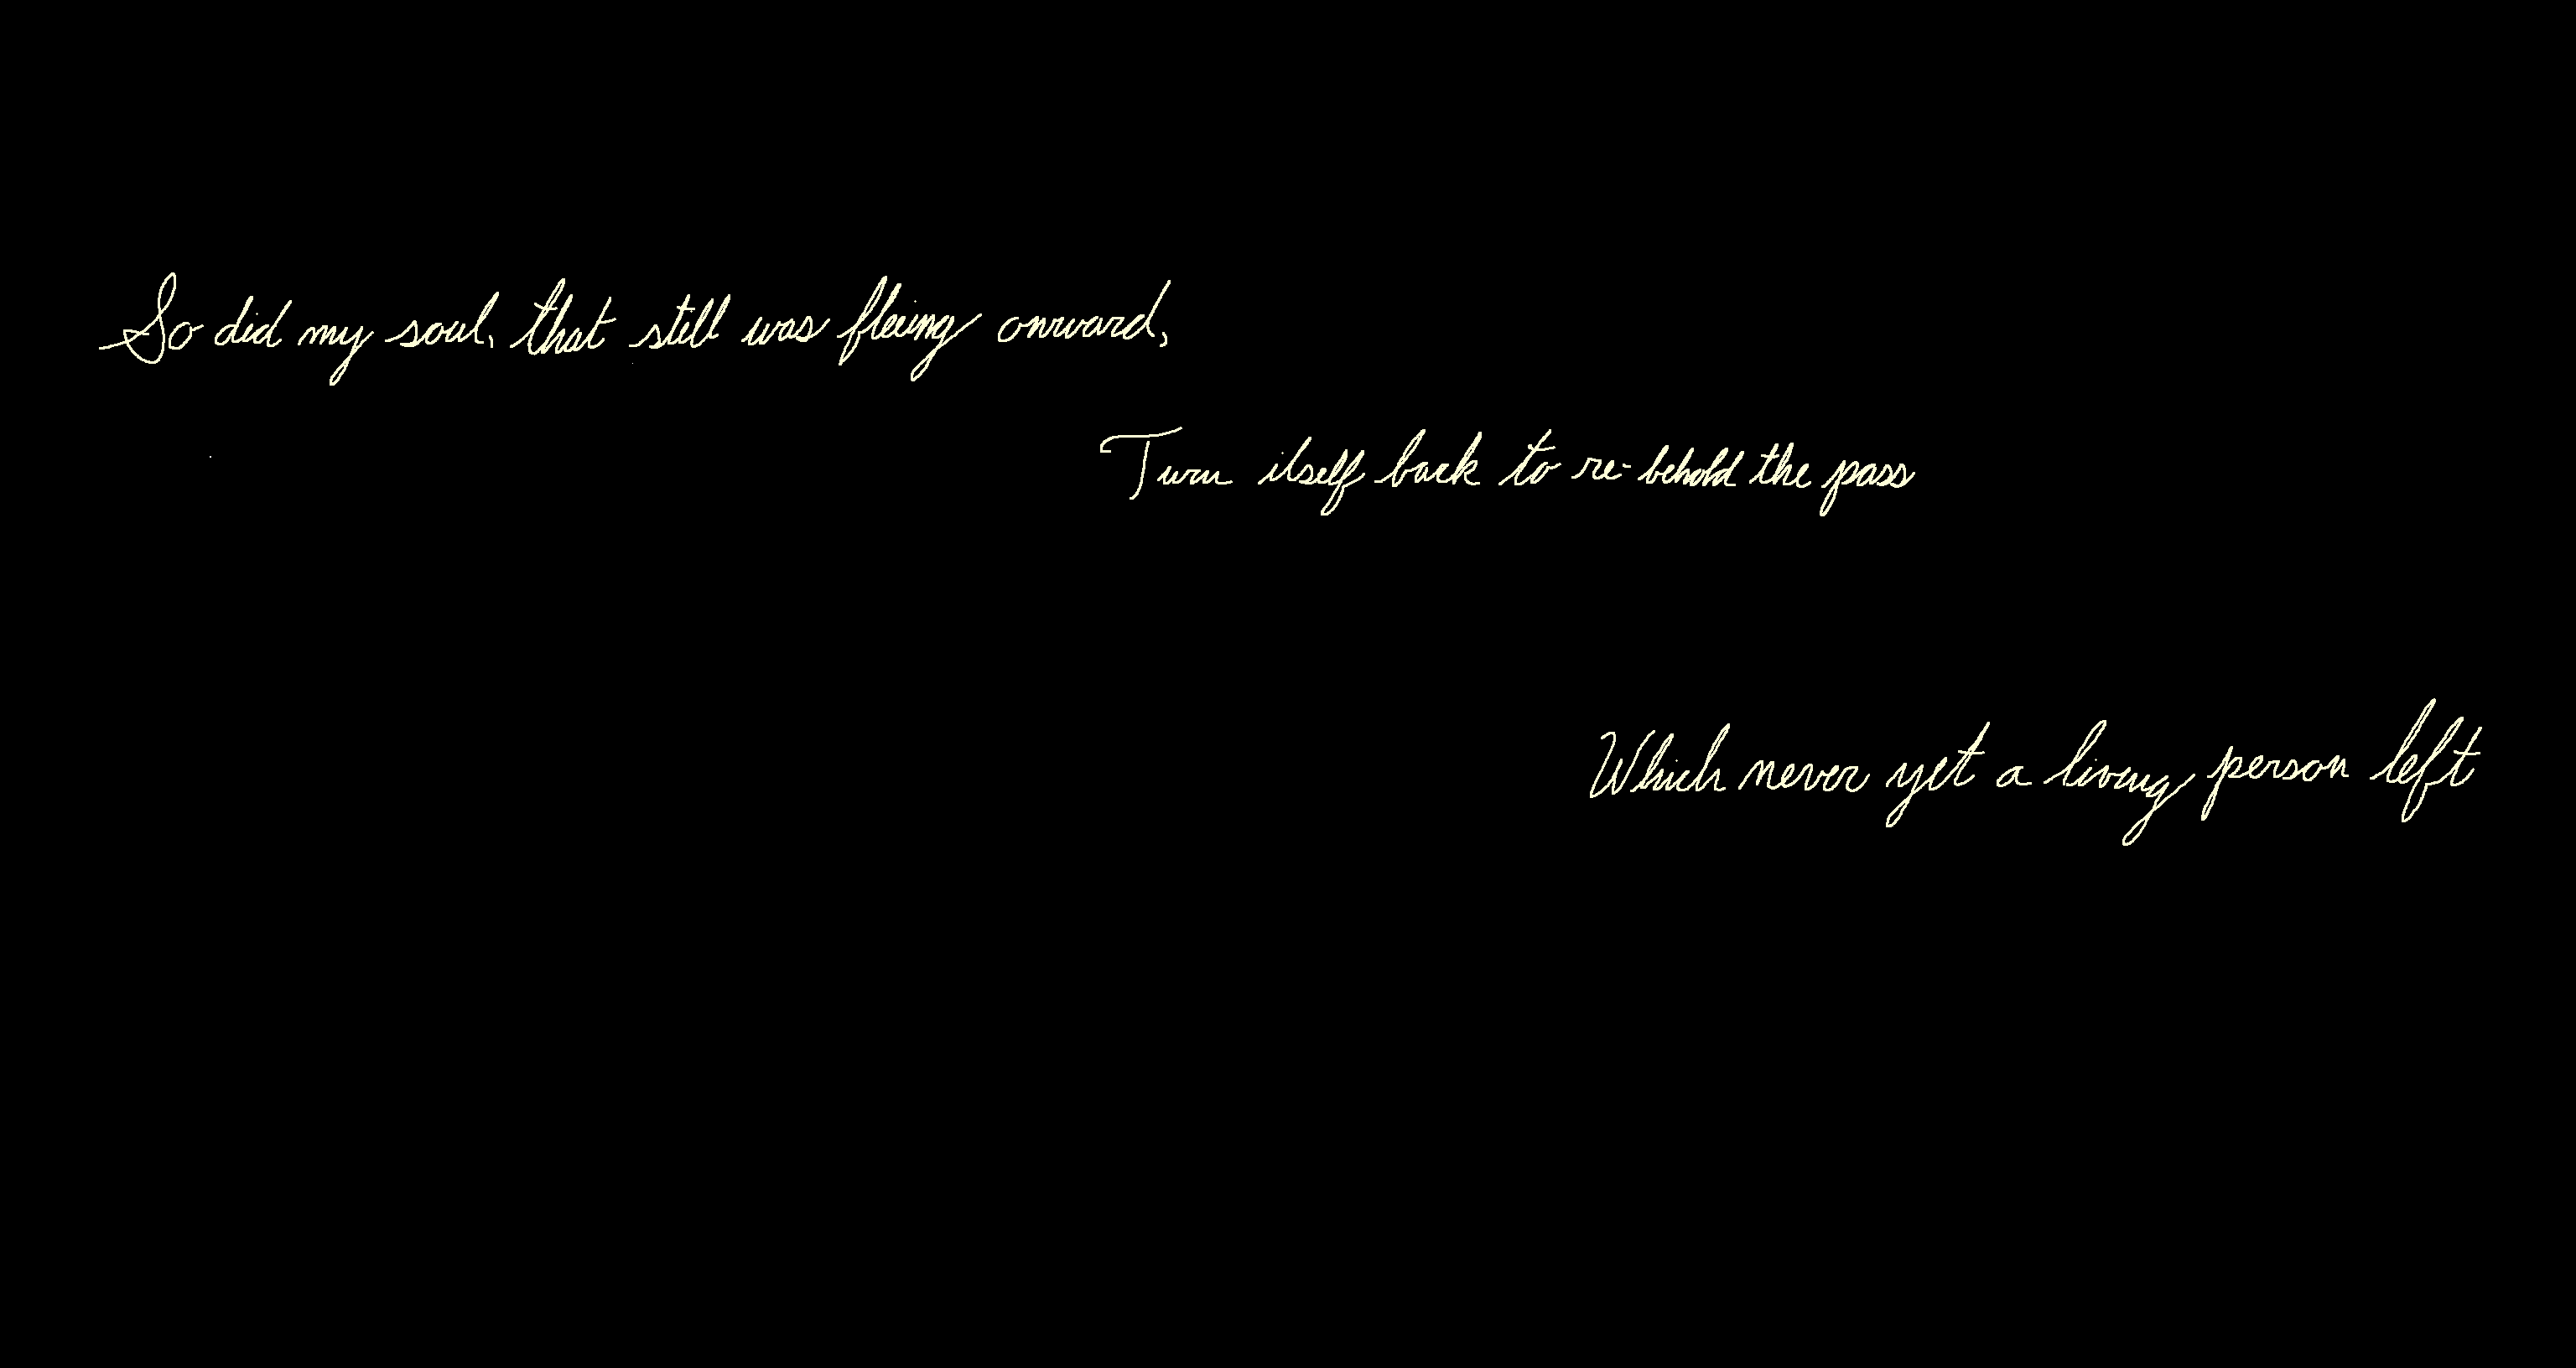 So did my soul, that still was fleeing onward,
Turn itself back to re-behold the pass
Which never yet a living person left